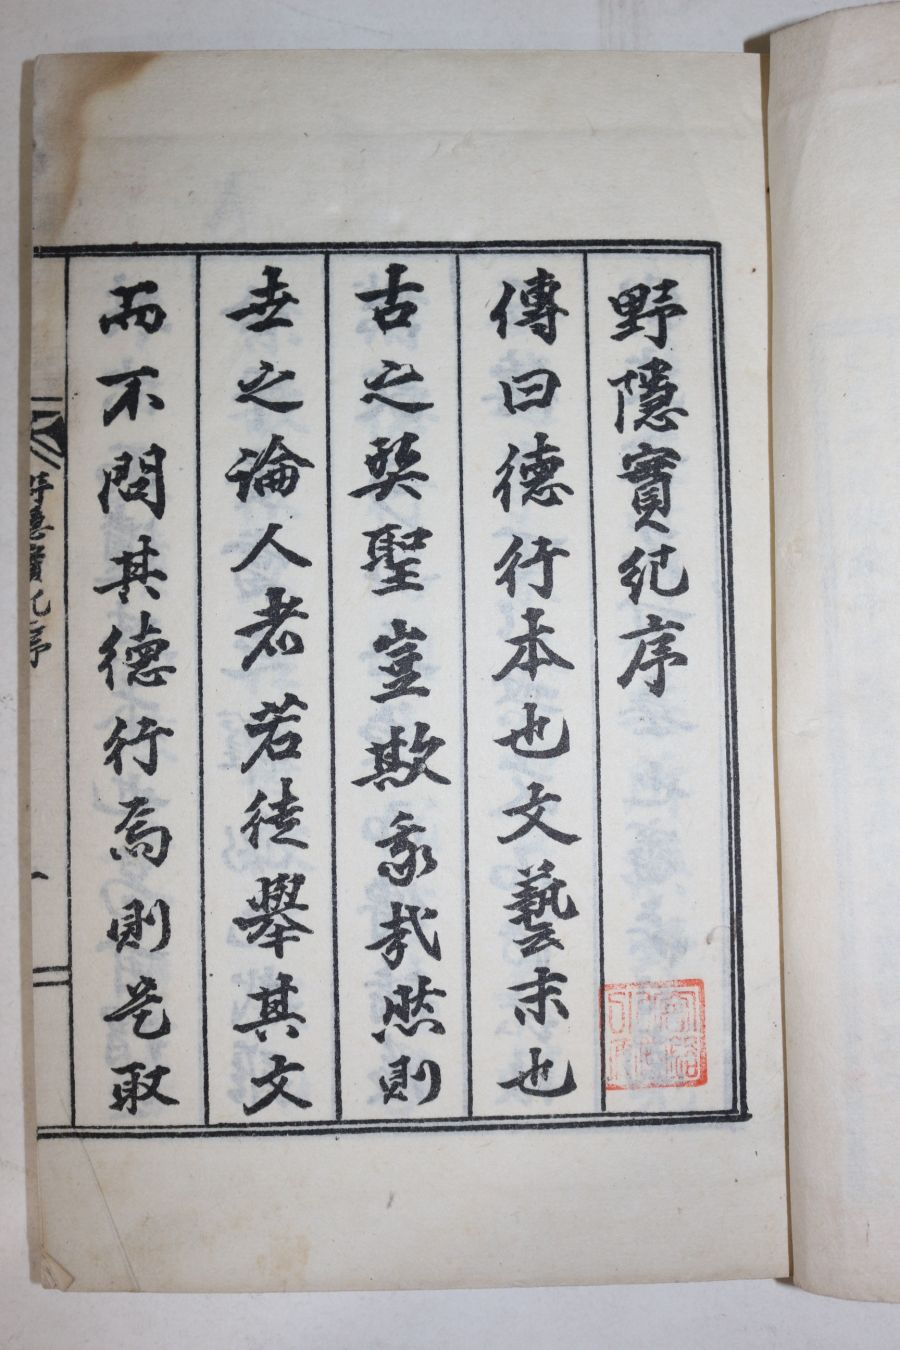 野隱實紀序
傳曰德行本也文藝末也
古之賢聖豈欺我哉然則
世之論人者若徒擧其文
而不問其德行焉則是取
野隱實紀序
一